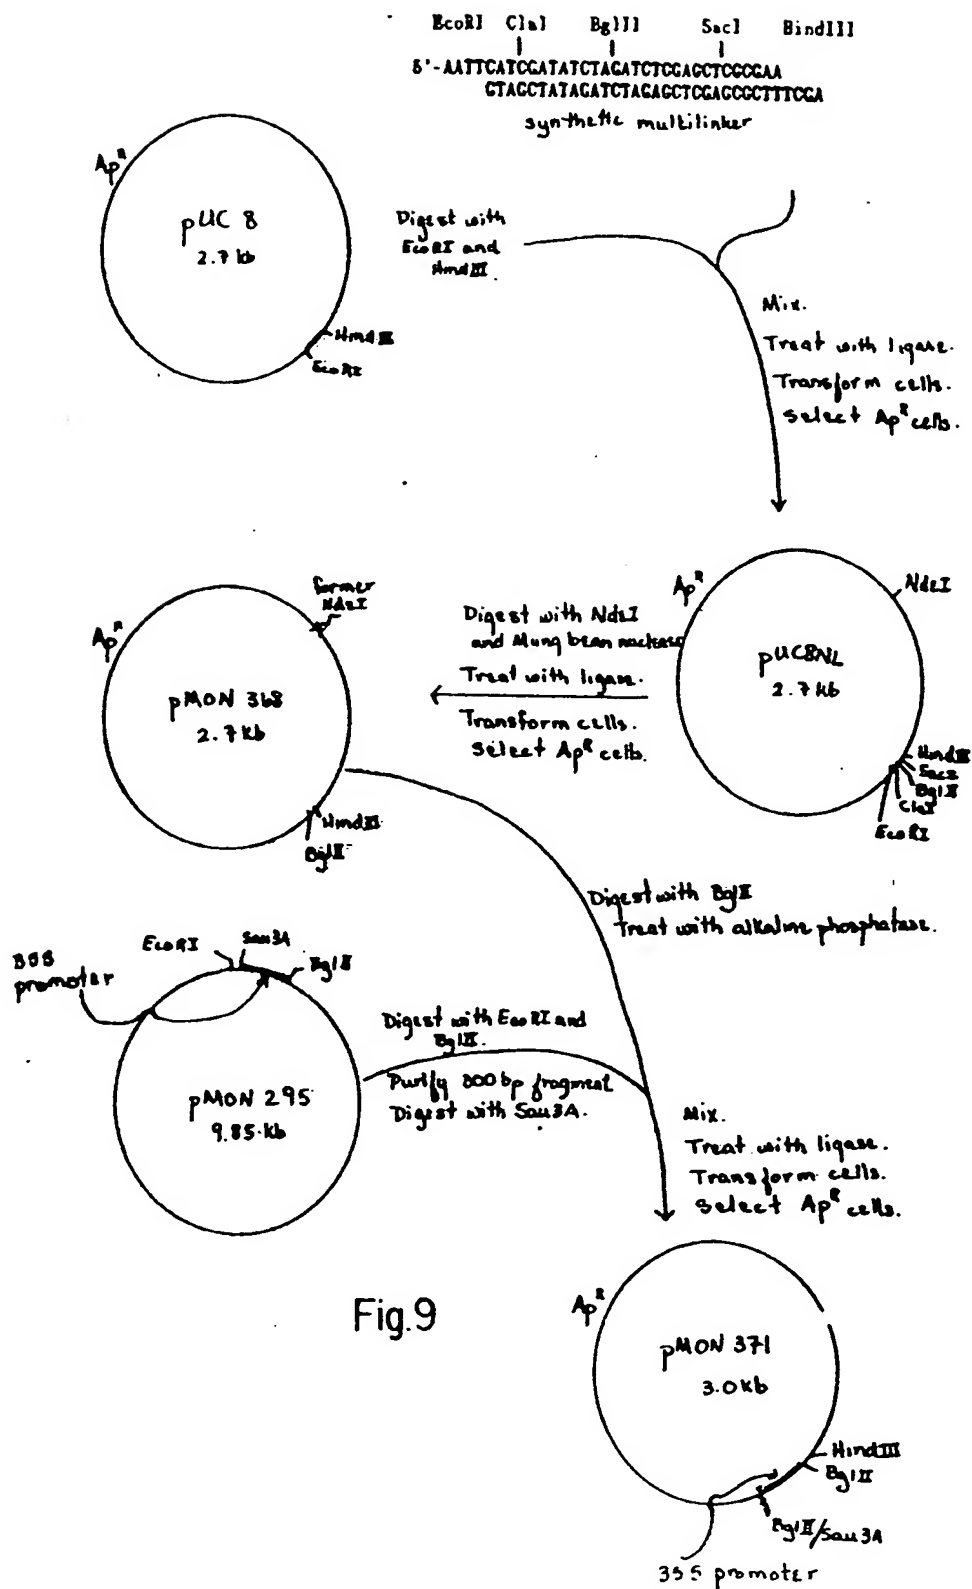 EcoRI ClaI BglII SacI BindIII
5'-AATTCATCGATATCTAGATCTCGAGCTCGCGAA
GTAGCTATAGATCTAGAGCTCGAGCGCTTTCGA
synthetic multilinker
Ap^R
pUC 8
2.7 kb
HindIII
EcoRI
Digest with
EcoRI and
HindIII.
Mix.
Treat with ligase.
Transform cells.
Select Ap^R cells.
Ap^R
NdeI
pUC8NL
2.7 kb
HindIII
SacI
BglII
ClaI
EcoRI
Digest with NdeI
and Mung bean nuclease
Treat with ligase.
Transform cells.
Select Ap^R cells.
former
NdeI
Ap^R
pMON 368
2.7 kb
HindIII
BglII
Digest with BglII
Treat with alkaline phosphatase.
promoter
EcoRI
Sau3A
BglII
pMON 295
9.85 kb
Digest with EcoRI and
BglII.
Purify 300 bp fragment
Digest with Sau3A.
Mix.
Treat with ligase.
Transform cells.
Select Ap^R cells.
Fig.9
Ap^R
pMON 371
3.0 kb
HindIII
BglII
BglII/Sau3A
35S promoter